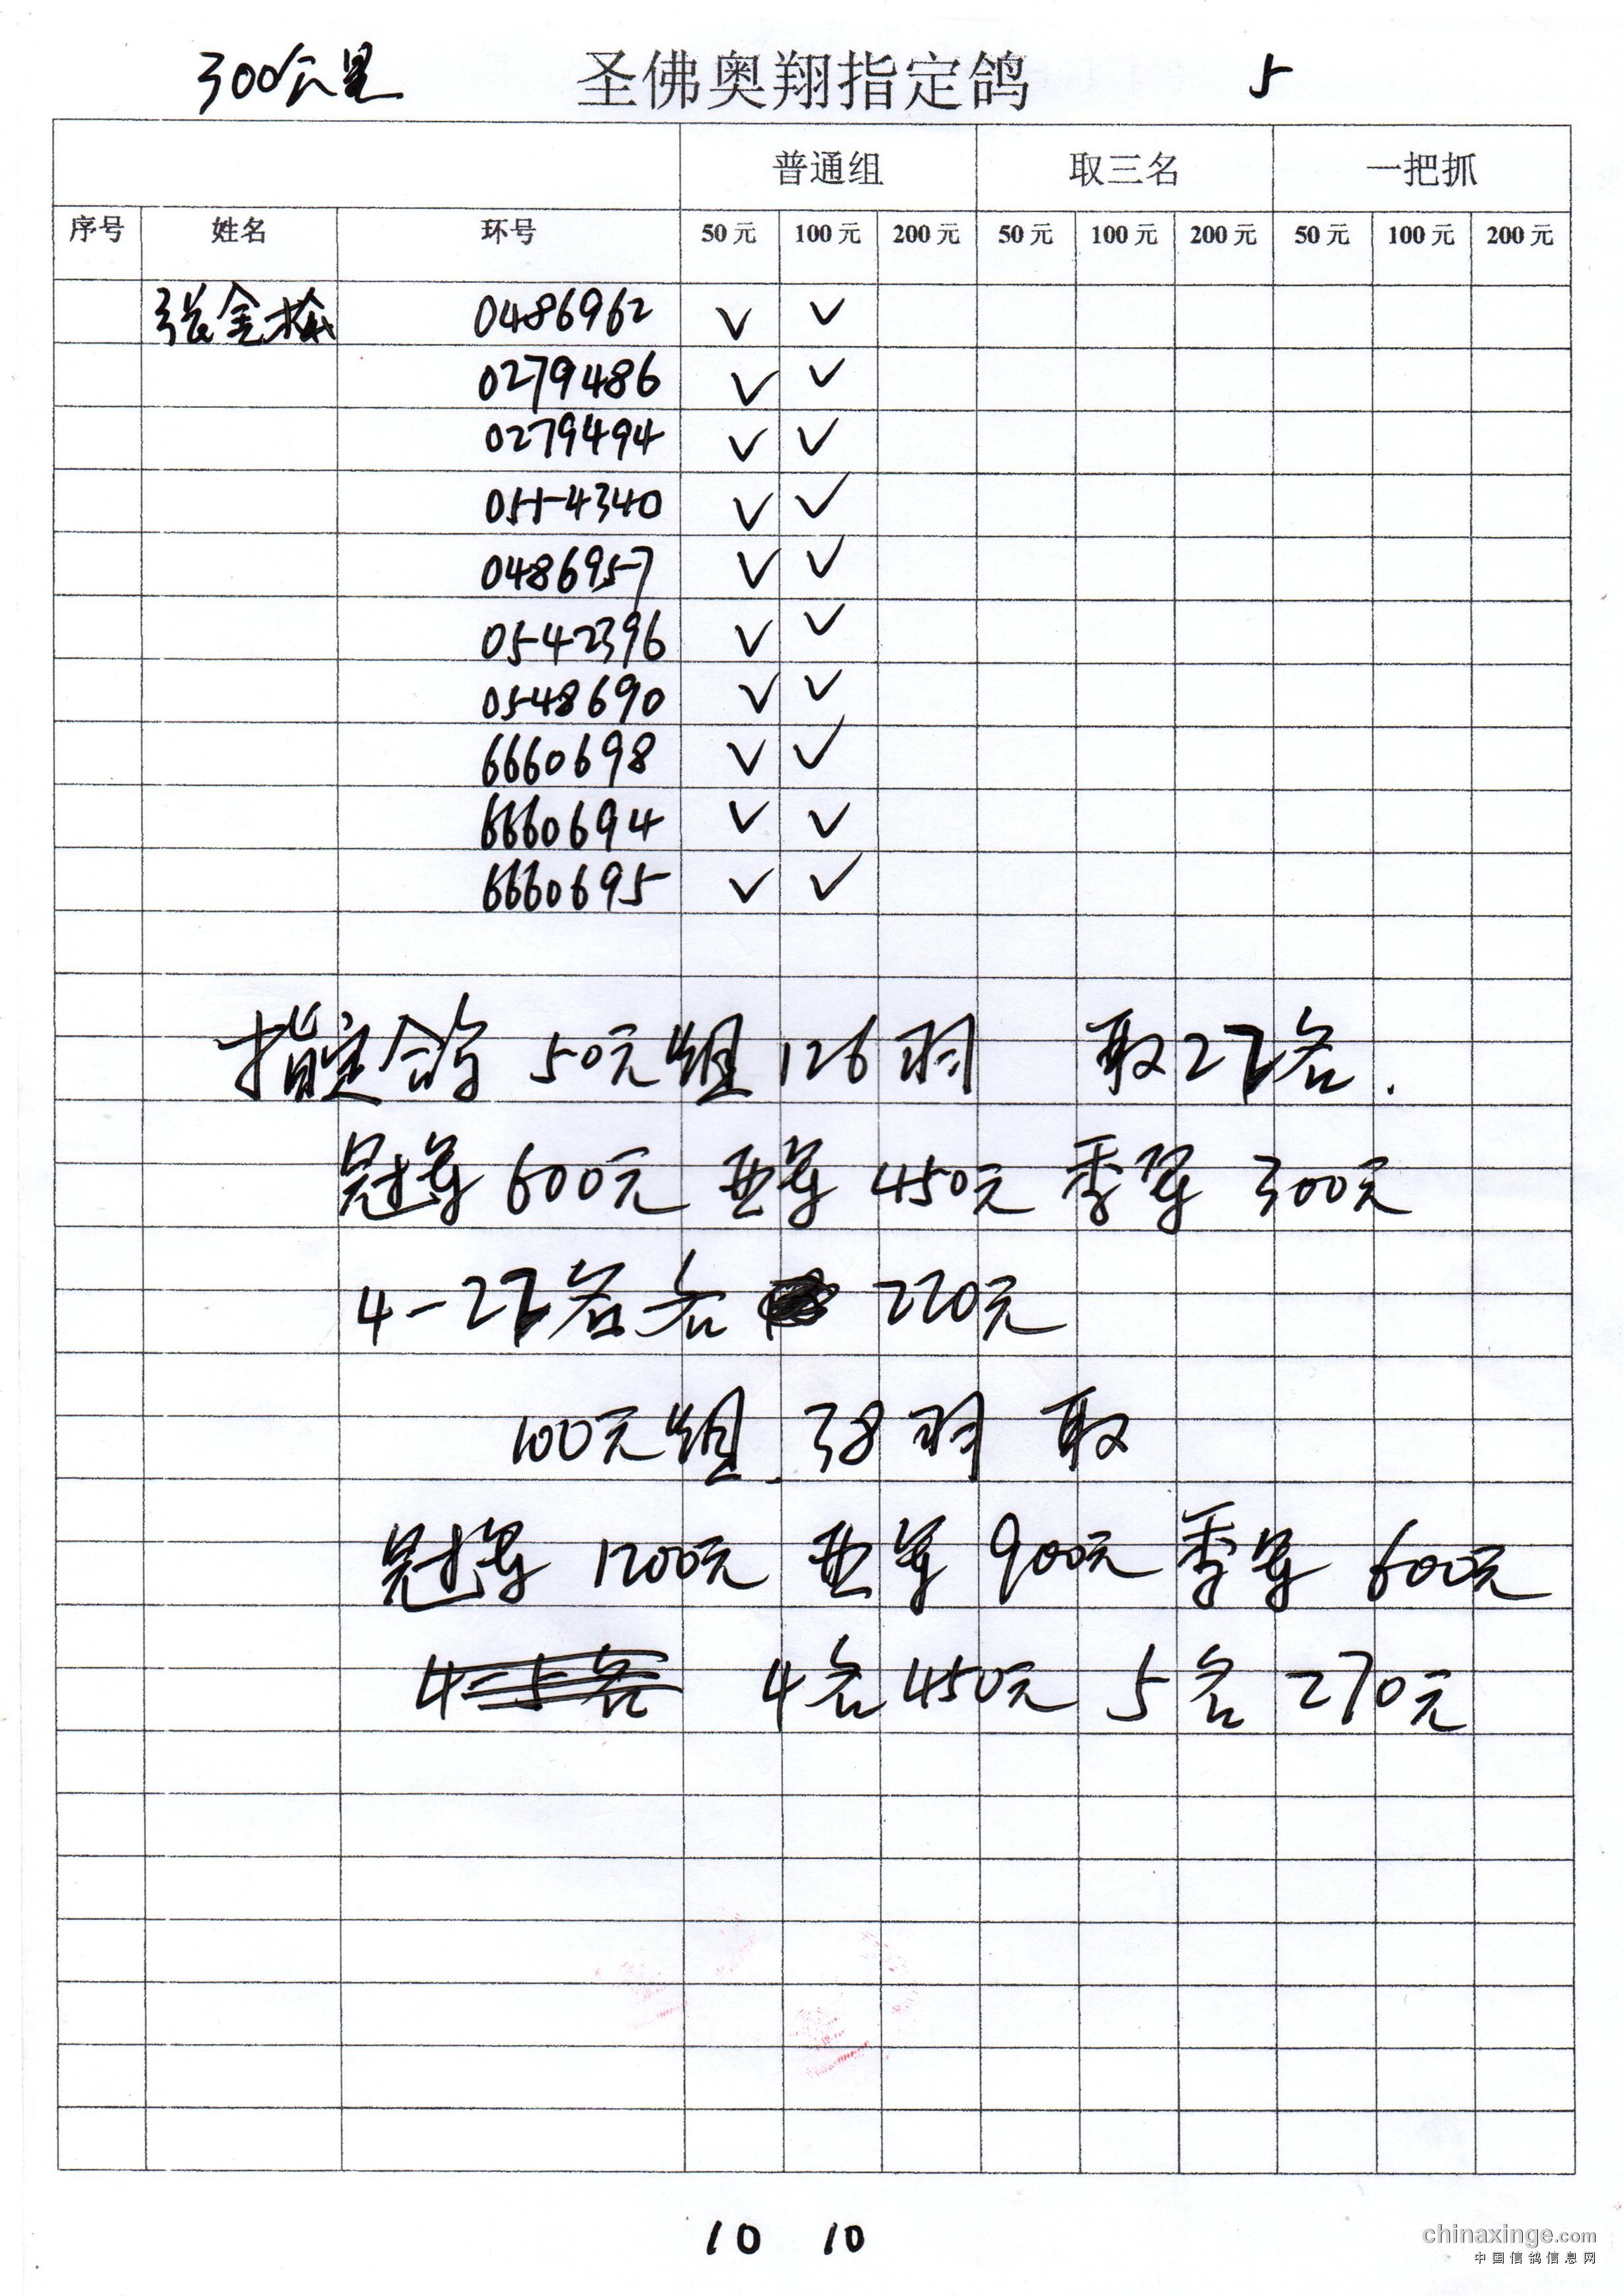 300公里 圣佛奥翔指定鸽 5
普通组 取三名 一把抓
序号 姓名 环号 50元 100元 200元 50元 100元 200元 50元 100元 200元
张金栋 0486962 √ √
0279486 √ √
0279494 √ √
0554340 √ √
0486957 √ √
0542396 √ √
0548690 √ √
6660698 √ √
6660694 √ √
6660695 √ √
指定鸽 50元组 126羽 取22名.
冠军 600元 亚军 450元 季军 300元
4-22名各 220元
100元组 38羽 取
冠军 1200元 亚军 900元 季军 600元
4-5名 4名450元 5名 270元
10 10
chinaxinge.com
中国信鸽信息网